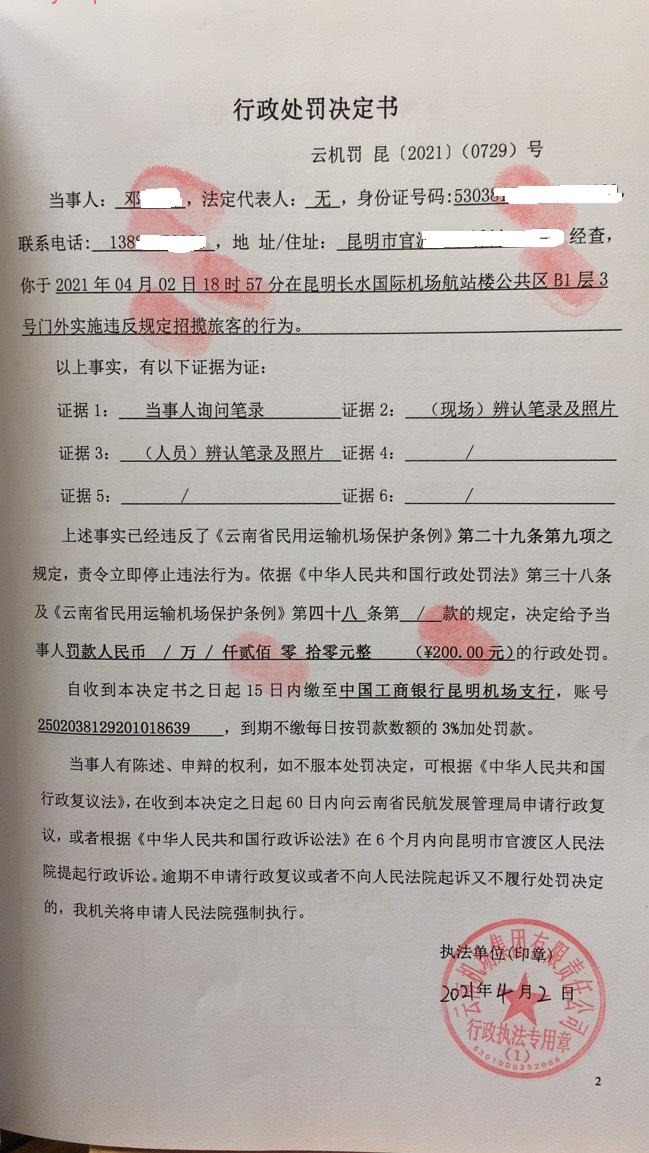 行政处罚决定书
云机罚 昆〔2021〕（0729）号
当事人： 邓 ，法定代表人： 无 ，身份证号码:530381
联系电话： 138 ，地 址/住址： 昆明市官 经查，
你于 2021 年 04 月 02 日 18 时 57 分在昆明长水国际机场航站楼公共区 B1 层 3
号门外实施违反规定招揽旅客的行为。
以上事实，有以下证据为证：
证据 1： 当事人询问笔录 证据 2： （现场）辨认笔录及照片
证据 3： （人员）辨认笔录及照片 证据 4： /
证据 5： / 证据 6： /
上述事实已经违反了《云南省民用运输机场保护条例》第二十九条第九项之
规定，责令立即停止违法行为。依据《中华人民共和国行政处罚法》第三十八条
及《云南省民用运输机场保护条例》第四十八 条第 / 款的规定，决定给予当
事人罚款人民币 / 万 / 仟贰佰 零 拾零元整 （¥200.00 元）的行政处罚。
自收到本决定书之日起 15 日内缴至中国工商银行昆明机场支行，账号
2502038129201018639 ，到期不缴每日按罚款数额的 3%加处罚款。
当事人有陈述、申辩的权利，如不服本处罚决定，可根据《中华人民共和国
行政复议法》，在收到本决定之日起 60 日内向云南省民航发展管理局申请行政复
议，或者根据《中华人民共和国行政诉讼法》在 6 个月内向昆明市官渡区人民法
院提起行政诉讼。逾期不申请行政复议或者不向人民法院起诉又不履行处罚决定
的，我机关将申请人民法院强制执行。
执法单位(印章)
2021年4月2日
云南机场集团有限责任公司
行政执法专用章
(1)
5301000252068
2